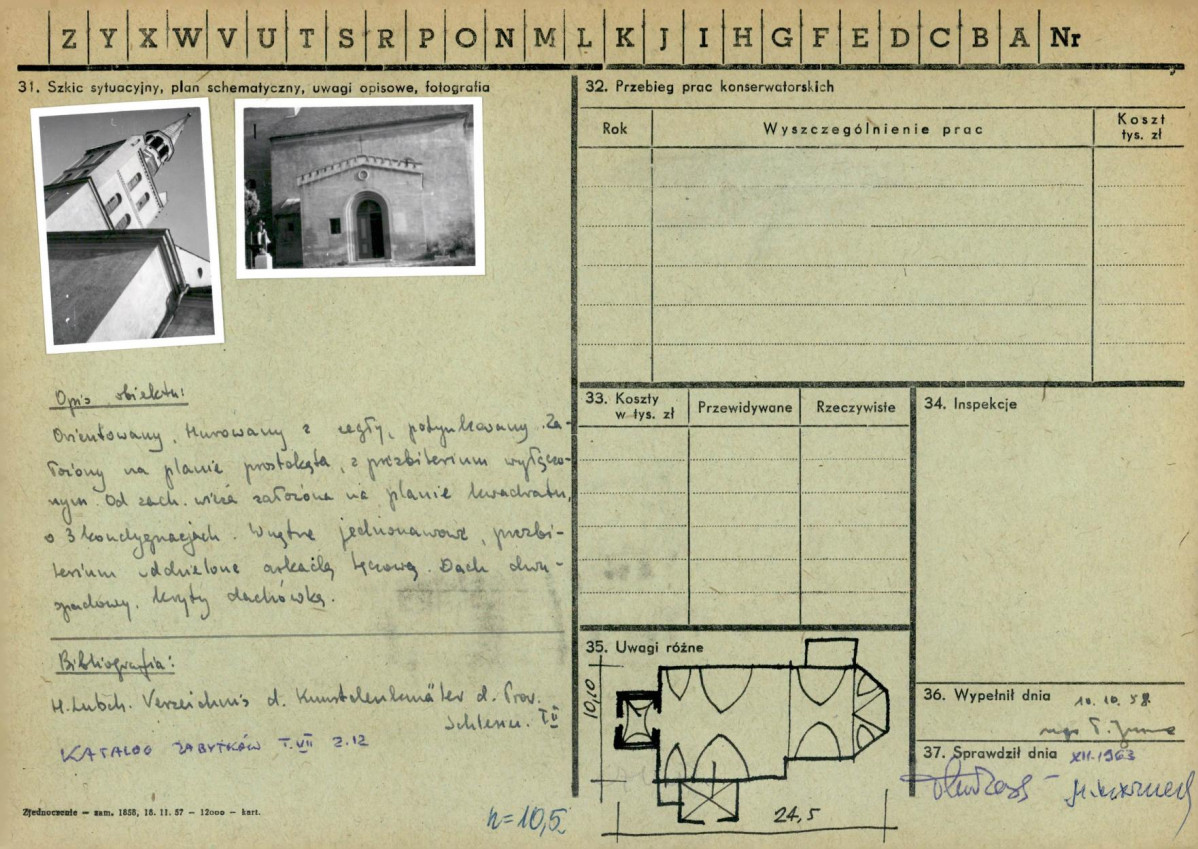 Z Y X W V U T S R P O N M L K J I H G F E D C B A Nr
31. Szkic sytuacyjny, plan schematyczny, uwagi opisowe, fotografia
Opis obiektu:
Orientowany, Murowany z cegły, potynkowany. Za-
łożony na planie prostokąta, z prezbiterium wyłączo-
nym. Od zach. wieża założona na planie kwadratu,
o 3 kondygnacjach. Wnętrze jednonawowe, prezbi-
terium oddzielone arkadą tęczową. Dach dwu-
spadowy, kryty dachówką.
Bibliografia:
H. Lutsch. Verzeichnis d. Kunstdenkmäler d. Prov.
Schlesien.
KATALOG ZABYTKÓW T.VII Z.12
Zjednoczenie — zam. 1858, 18. 11. 57 — 12000 — kart.
h=10,5
32. Przebieg prac konserwatorskich
Rok Wyszczególnienie prac Koszt tys. zł
33. Koszty w tys. zł Przewidywane Rzeczywiste
34. Inspekcje
35. Uwagi różne
10,10
24,5
36. Wypełnił dnia 10. 10. 58
mgr T.
37. Sprawdził dnia XII.1963